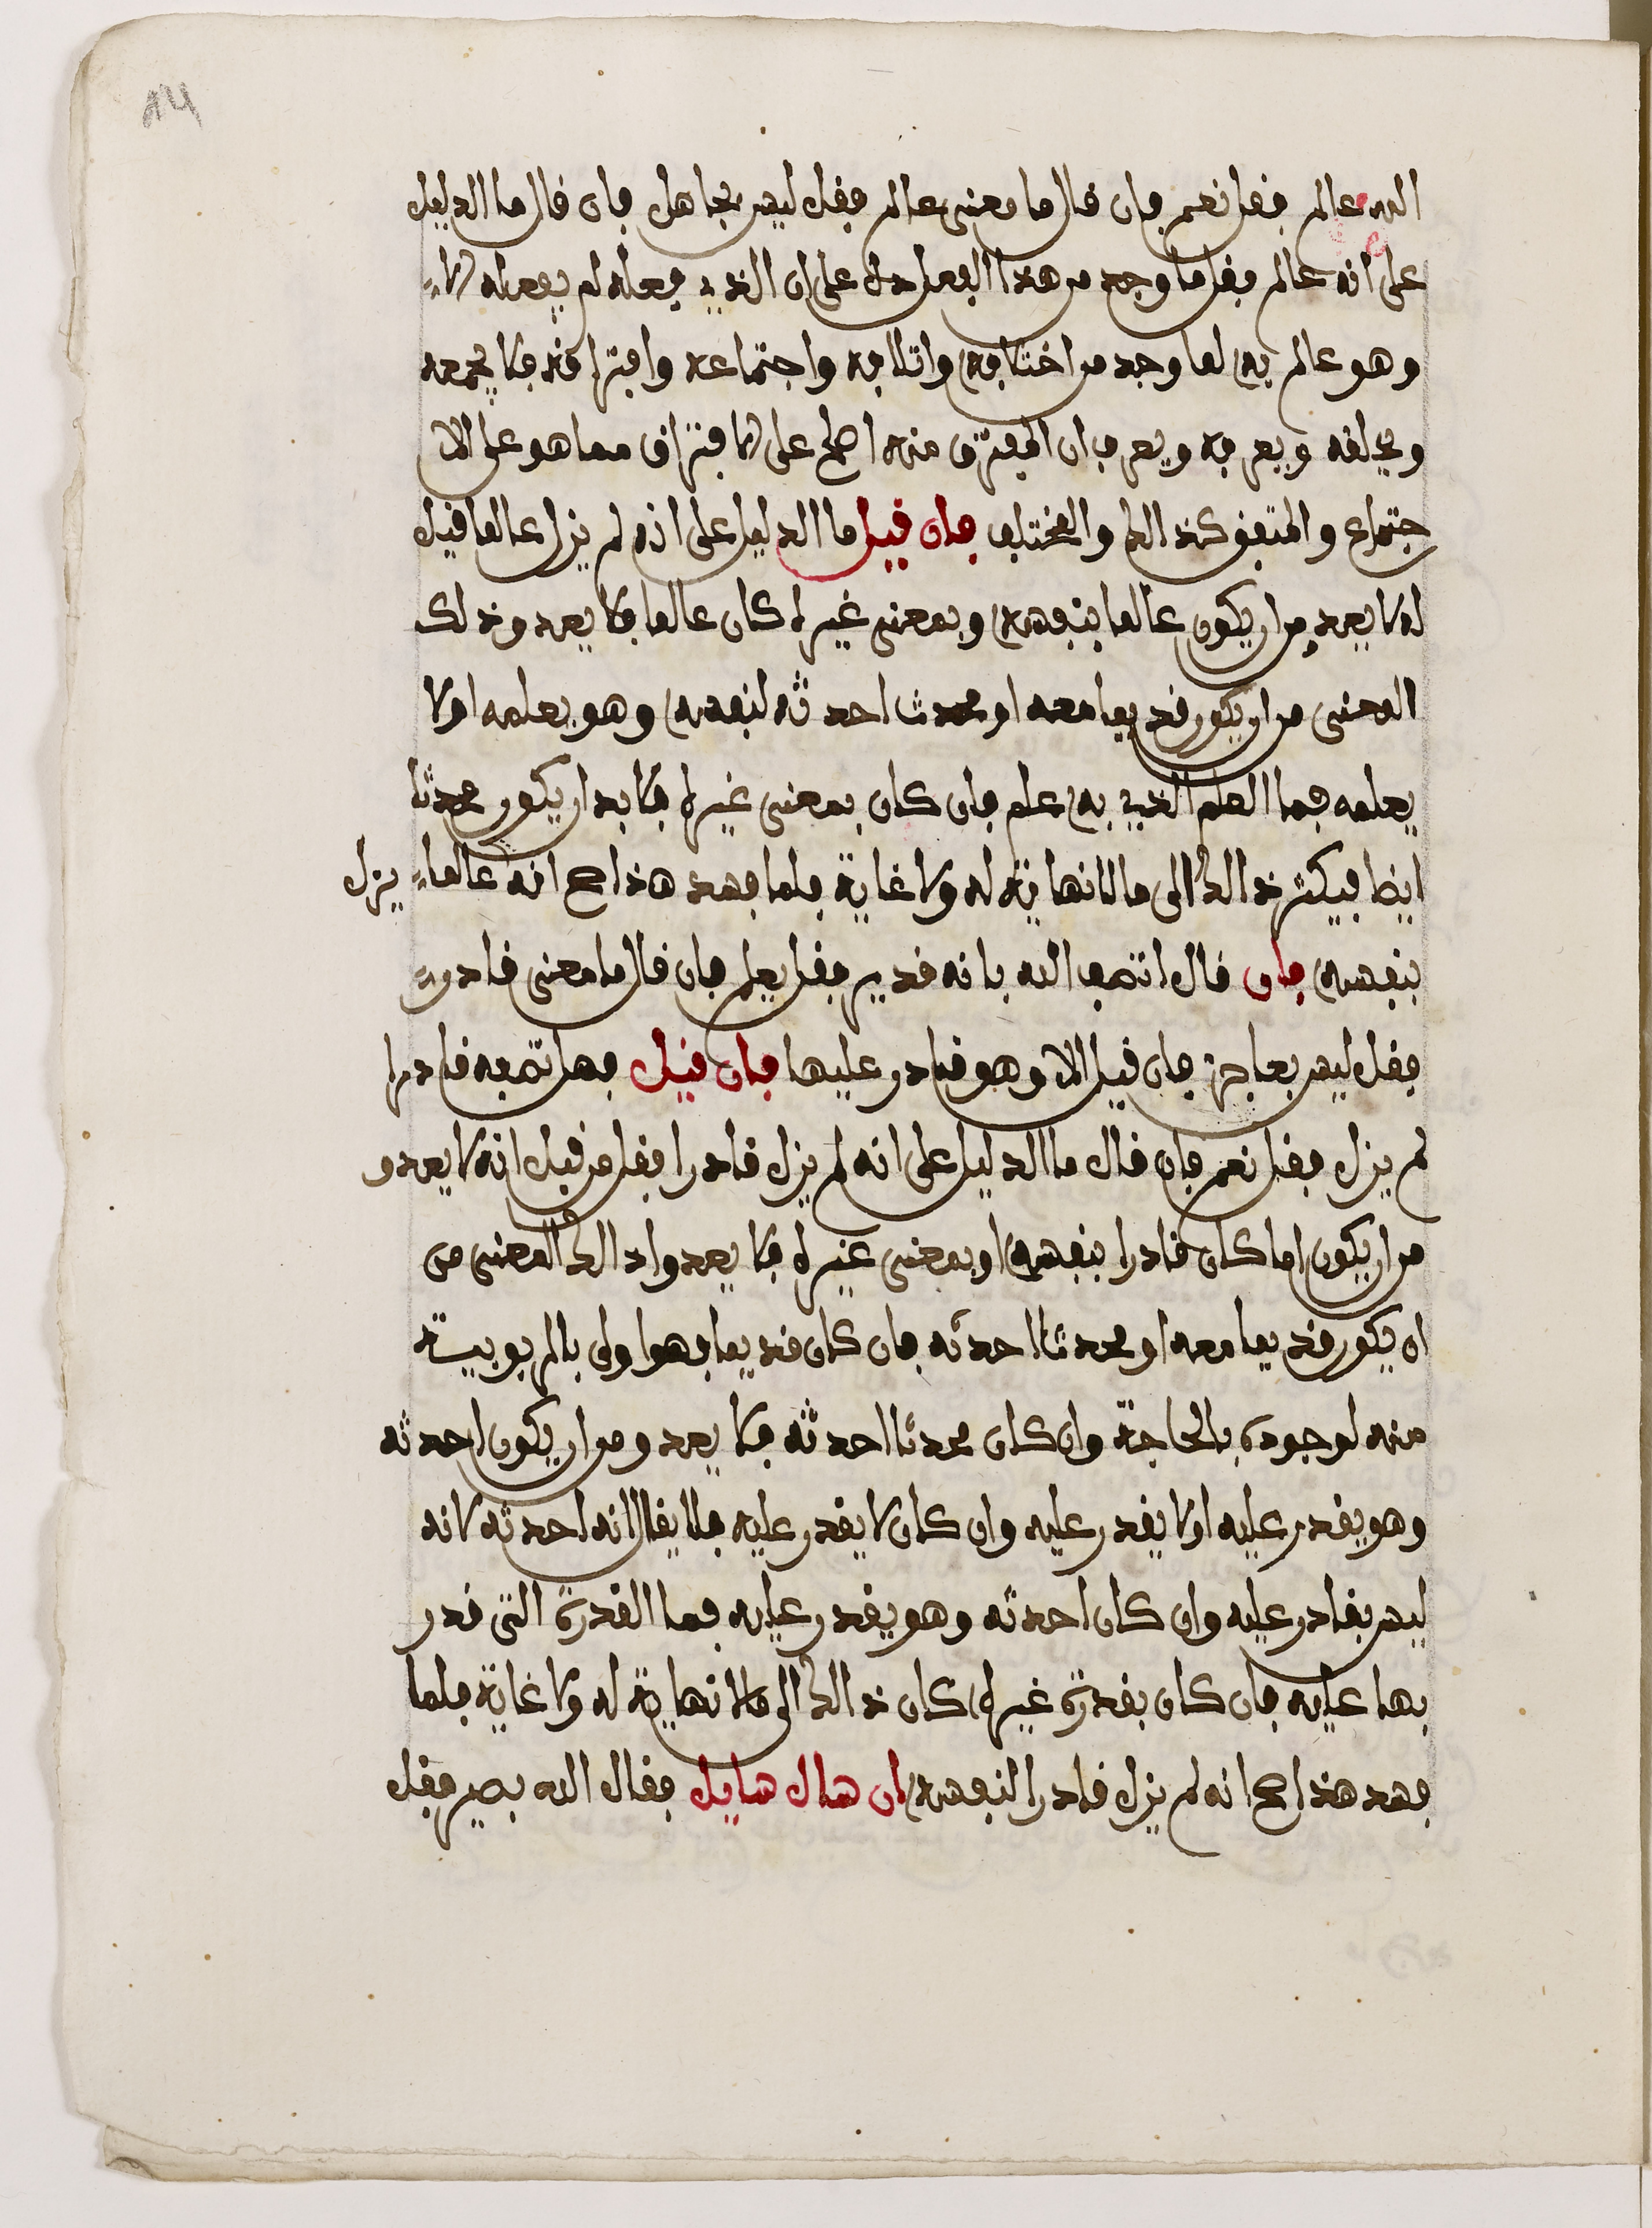 الله عالم فقل نعم فان قال ما معنى عالم فقل ليس بجاهل فان قال ما الدليل
على انه عالم فقل ما وجد من هذا الفعل دل على ان الذي فعله لم يفعله الا
وهو عالم به لما وجد من اختلافه واتلافه واجتماعه وافتراقه فلا يجمعه
ويخالفه ويعرفه ويعرف ان المفترق منه اصلح على الافتراق مما هو على الا
جتماع والمتفق كذالك والمختلف فان قيل ما الدليل على انه لم يزل عالما قيل
له لا يعد من ان يكون عالما بنفسه وبمعنى غيره كان عالما فلا يعد وذلك
المعنى من ان يكون قديما معه او محدث احدثه لنفسه وهو يعلمه اولا
يعلمه فما العلم الذي به علم فان كان بمعنى غيره فلا بد ان يكون محدثا
ايضا فيكثر ذالك الى ما لا نهاية له ولا غاية فلما فسد هذا صح انه عالما يزل
بنفسه فان قال اتصف الله بانه قدير فقل يعلم فان قال ما معنى قادر
فقل ليس بعاجز فان قيل الا وهو قادر عليها فان قيل فهل تصفه قادرا
لم يزل فقل نعم فان قال ما الدليل على انه لم يزل قادرا فقل من قبل انه لا يعدو
من ان يكون اما كان قادرا بنفسه او بمعنى غيره فلا يعدوا ذالك المعنى من
ان يكون قديما معه او محدثا احدثه فان كان قديما فهو اولى بالربوبية
منه لوجوده بالحاجة وان كان محدثا احدثه فلا يعدو من ان يكون احدثه
وهو يقدر عليه اولا يقدر عليه وان كان لا يقدر عليه فلا يقال انه احدثه لانه
ليس بقادر عليه وان كان احدثه وهو يقدر عليه فما القدرة التي قدر
بها عليه فان كان بقدرة غيره كان ذالك الى مالا نهاية له ولا غاية فلما
فسد هذا صح انه لم يزل قادرا لنفسه ان سال سايل فقال الله بصير فقل